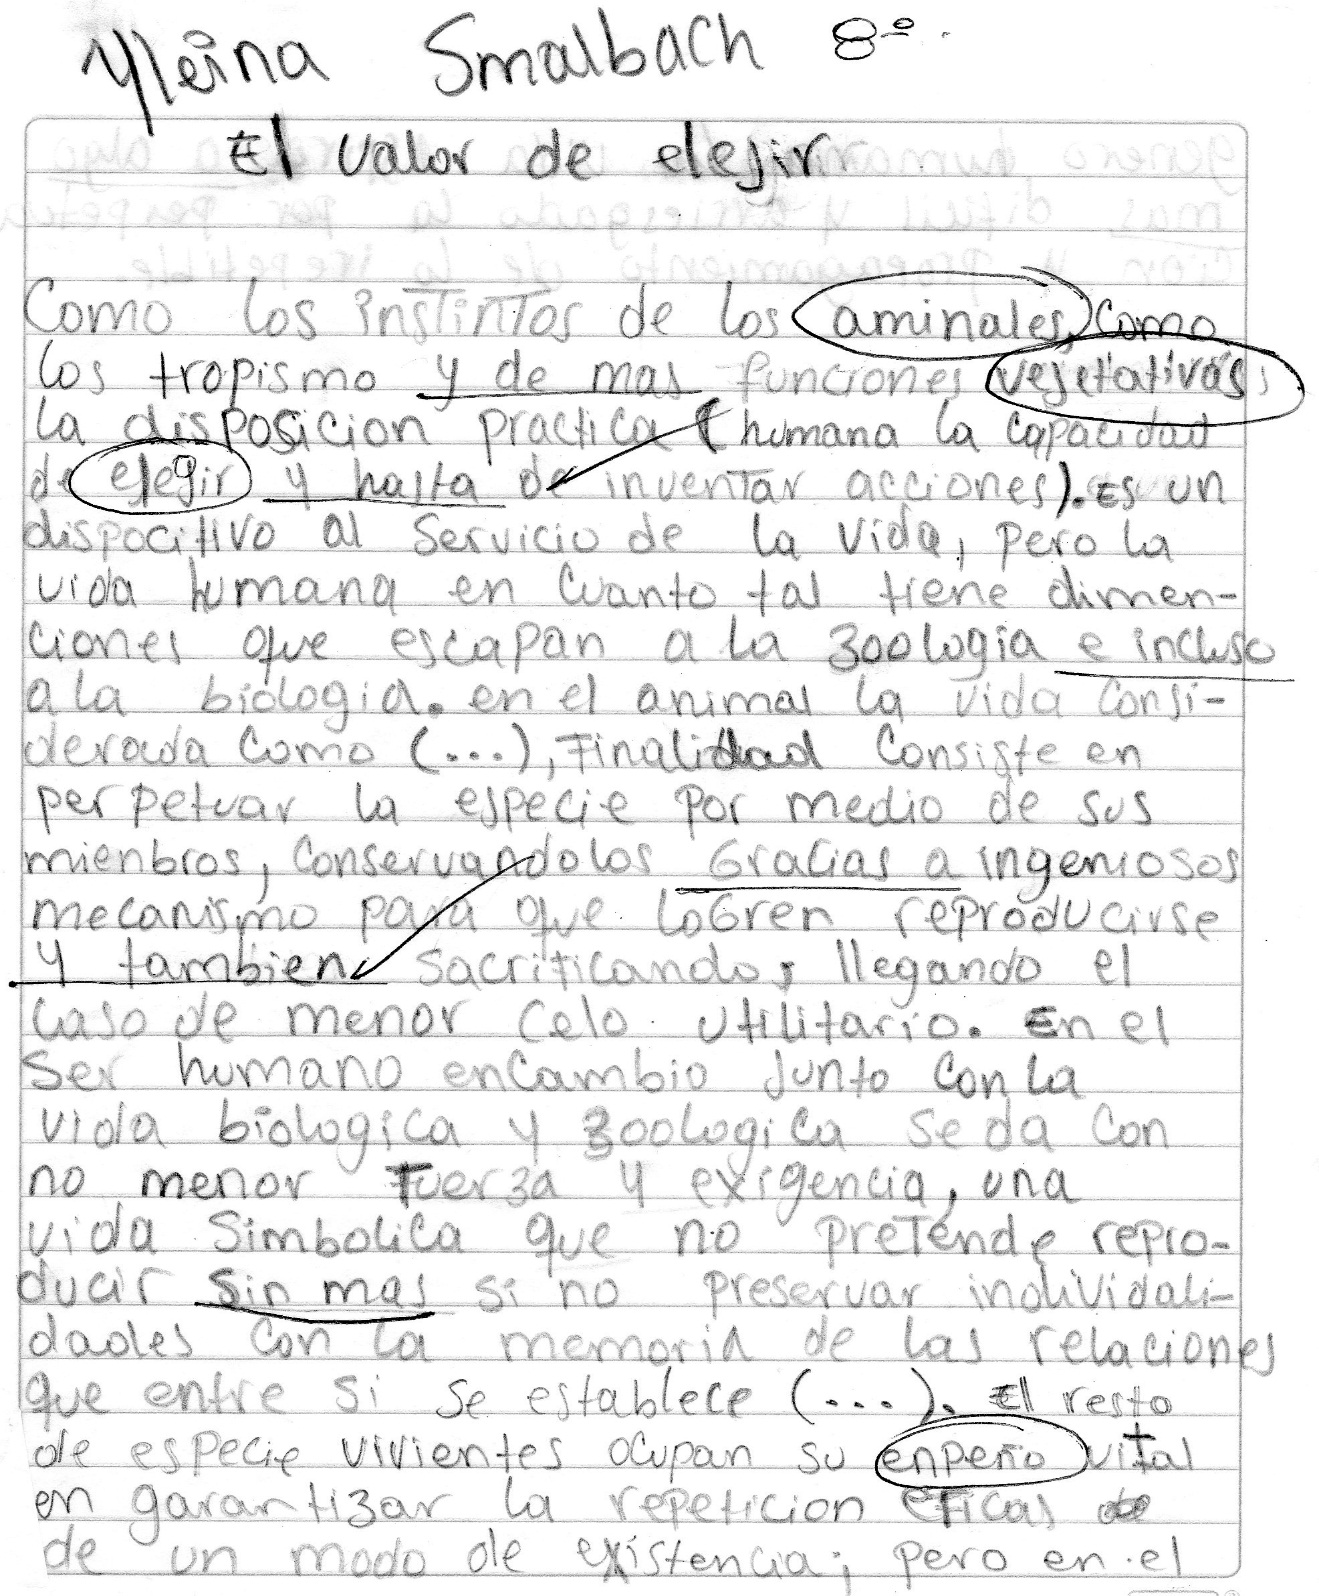 Yleina Smalbach 8º
El valor de elejir
Como los instintos de los aminales, como
los tropismo y de mas funciones vejetativas
la disposicion practica (humana la capacidad
de elegir y hasta de inventar acciones). Es un
dispocitivo al servicio de la vida, pero la
vida humana en cuanto tal tiene dimen-
ciones que escapan a la zoologia e incluso
a la biologia. en el animal la vida consi-
derada como (...), Finalidad consiste en
perpetuar la especie por medio de sus
mienbros, conservandolos Gracias a ingeniosos
mecanismo para que loGren reproducirse
y tambien sacrificando, llegando el
caso de menor celo utilitario. En el
ser humano encambio junto con la
vida biologica y zoologica se da con
no menor fuerza y exigencia, una
vida simbolica que no pretende repro-
ducir sin mas si no preservar individali-
dades con la memoria de las relaciones
que entre si se establece (...). El resto
de especie vivientes ocupan su enpeño vital
en garantizar la repeticion eficas de
de un modo de existencia; pero en el